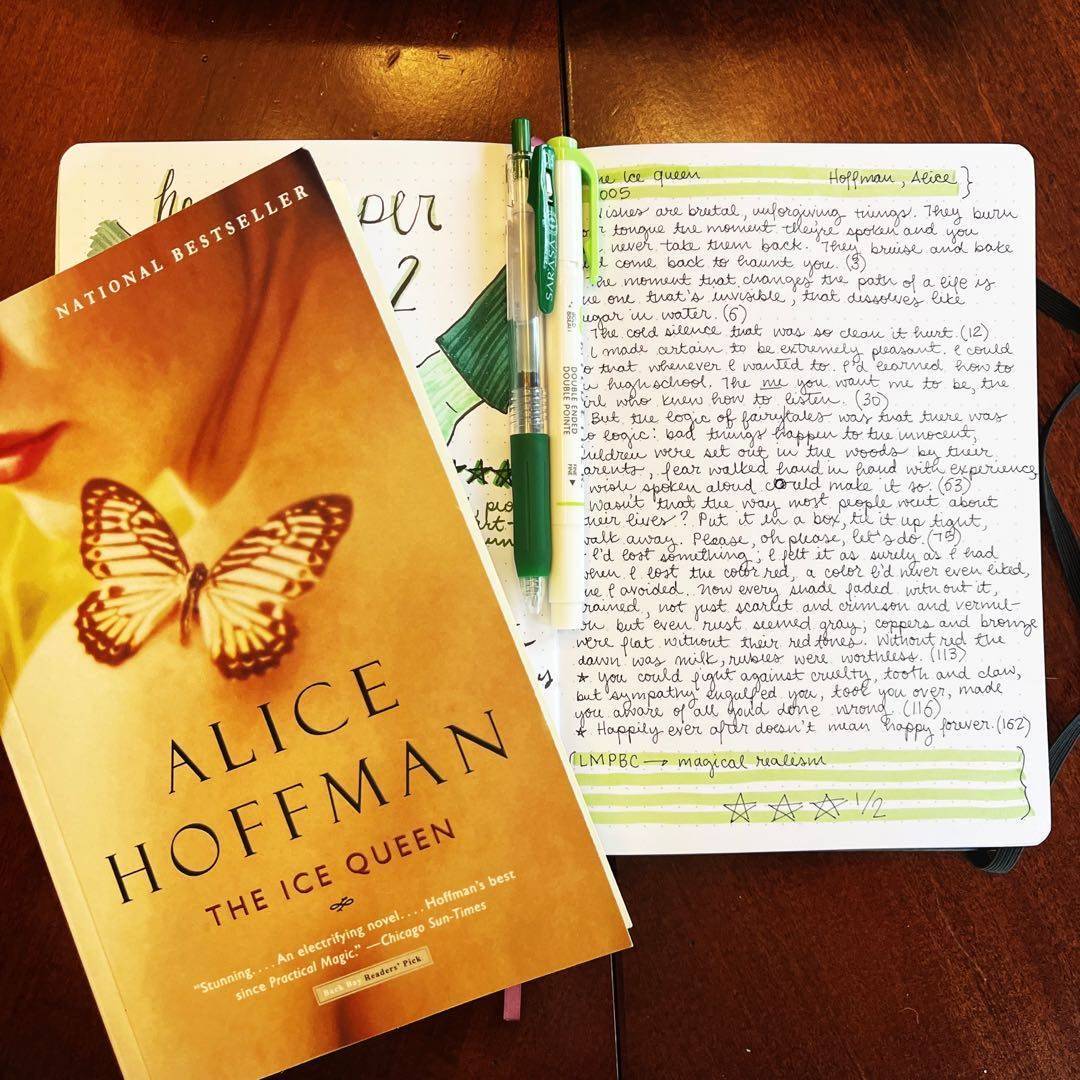 NATIONAL BESTSELLER
ALICE
HOFFMAN
THE ICE QUEEN
"Stunning. . . . An electrifying novel. . . . Hoffman's best
since Practical Magic." —Chicago Sun-Times
Back Bay Readers' Pick
2
SARASA
DOUBLE ENDED
DOUBLE POINTE
FINE
FINE
Ice Queen Hoffman, Alice }
005
wishes are brutal, unforgiving things. They burn
tongue the moment they're spoken and you
never take them back. They bruise and bake
come back to haunt you. (3)
the moment that changes the path of a life is
one that's invisible, that dissolves like
sugar in water. (6)
The cold silence that was so clean it hurt. (12)
I made certain to be extremely pleasant. I could
do that whenever I wanted to. I'd learned how to
in high school. The me you want me to be, the
girl who knew how to listen. (30)
But the logic of fairytales was that there was
no logic: bad things happen to the innocent,
children were set out in the woods by their
parents, fear walked hand in hand with experience,
wish spoken aloud could make it so. (63)
wasn't that the way most people went about
their lives? Put it in a box, tie it up tight,
walk away. Please, oh please, let's do. (75)
I'd lost something; I felt it as surely as I had
when I lost the color red, a color I'd never even liked,
one I avoided. Now every shade faded without it,
drained, not just scarlet and crimson and vermil-
on but even rust seemed gray; coppers and bronze
were flat without their red tones. Without red the
dawn was milk, rubies were worthless. (113)
★ you could fight against cruelty, tooth and claw,
but sympathy engulfed you, took you over, made
you aware of all you'd done wrong. (116)
★ Happily ever after doesn't mean happy forever. (152)
(LMPBC → magical realism
☆ ☆ ☆ 1/2